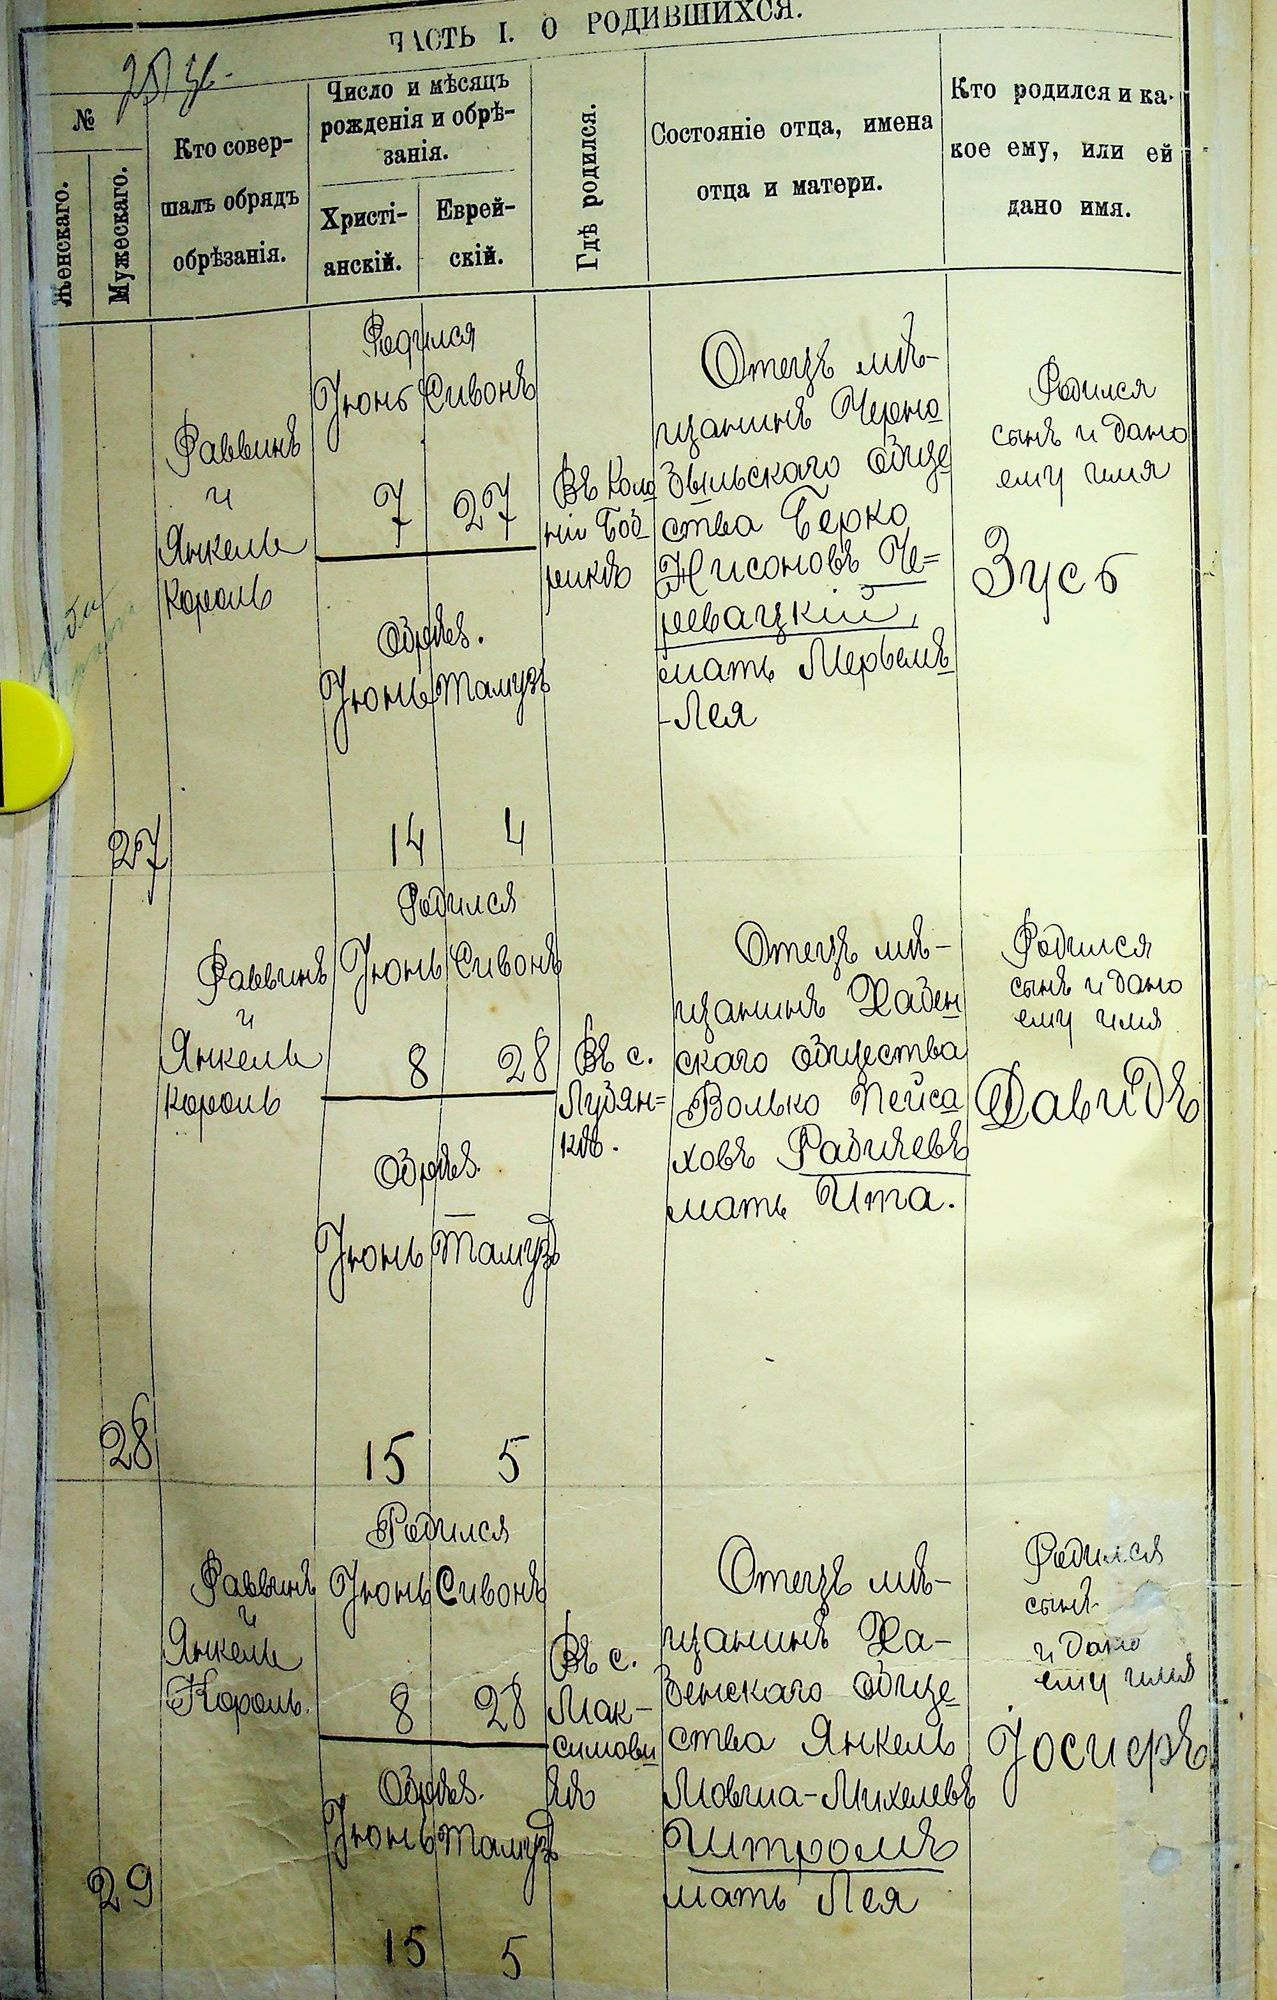 ЧАСТЬ I. О РОДИВШИХСЯ.
№
Женскаго.
Мужескаго.
Кто совер-
шалъ обрядъ
обрѣзанія.
Число и мѣсяцъ
рожденія и обрѣ-
занія.
Христі-
анскій.
Еврей-
скій.
Гдѣ родился.
Состояніе отца, имена
отца и матери.
Кто родился и ка-
кое ему, или ей
дано имя.
27
Раввинъ
и
Янкель
Король
Родился
Іюнь Сивонъ
7 27
Обрѣз.
Іюнь Тамузъ
14 4
Въ Коло
ніи Боб
рикѣ
Отецъ мѣ-
щанинъ Черно
быльскаго обще
ства Берко
Нисоновъ Че=
ревацкій,
мать Мервемъ
-Лея
Родился
сынъ и дано
ему имя
Зусь
28
Раввинъ
и
Янкель
Король
Родился
Іюнь Сивонъ
8 28
Обрѣз.
Іюнь Тамузъ
15 5
Въ с.
Лубян=
кѣ.
Отецъ мѣ-
щанинъ Хабен
скаго общества
Волько Пейса
ховъ Рабичевъ
мать Ита.
Родился
сынъ и дано
ему имя
Давидъ
29
Раввинъ
и
Янкель
Король.
Родился
Іюнь Сивонъ
8 28
Обрѣз.
Іюнь Тамузъ
15 5
Въ с.
Мак-
симови
чѣ
Отецъ мѣ-
щанинъ Ха-
бенскаго обще
ства Янкель
Мовша-Михелевъ
Штромъ
мать Лея
Родился
сынъ
и дано
ему имя
Іосифъ